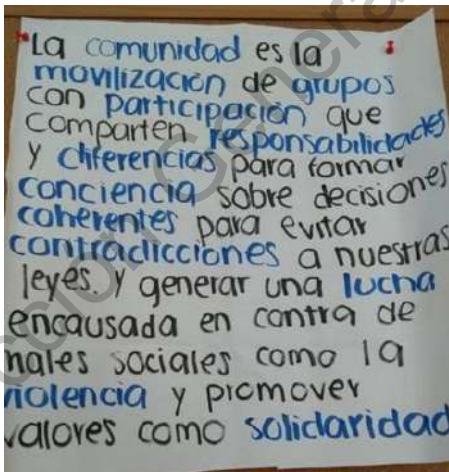 "La comunidad es la
movilización de grupos
con participación que
comparten responsabilidades
y diferencias para formar
conciencia sobre decisiones
coherentes para evitar
contradicciones a nuestras
leyes. y generar una lucha
encausada en contra de
males sociales como la
violencia y promover
valores como solidaridad